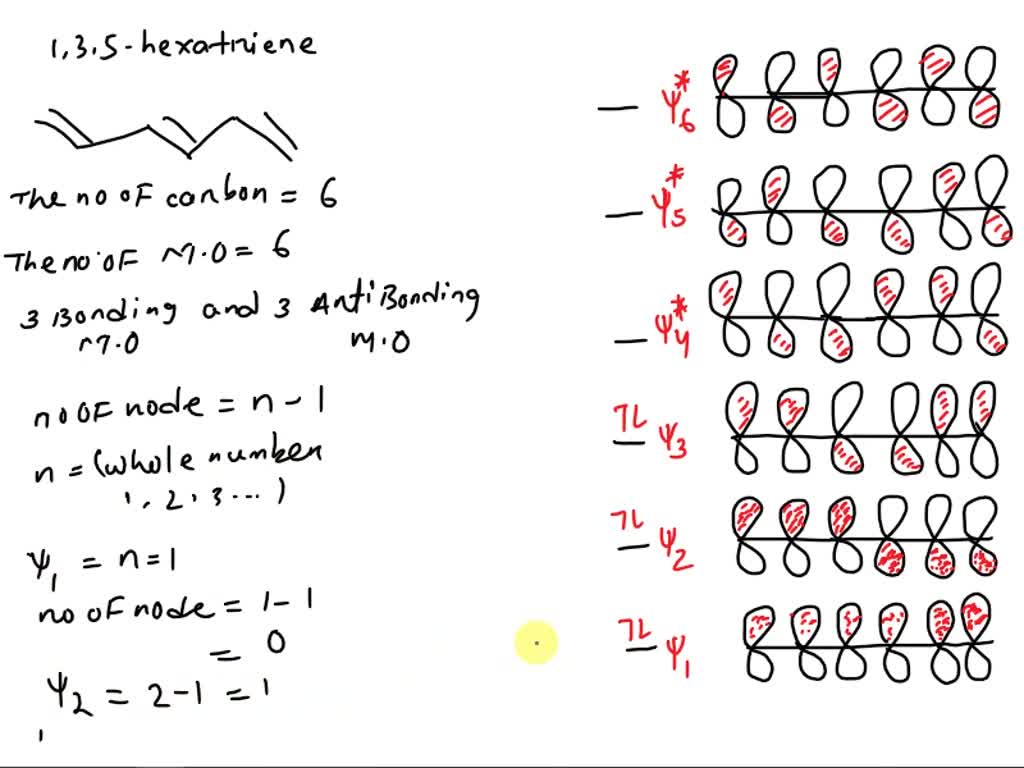 1,3,5-hexatriene
The no of carbon = 6
The no. of M.O = 6
3 Bonding and 3 AntiBonding
M.O M.O
no OF node = n - 1
n = (whole number
1, 2, 3 ... )
Ψ1 = n = 1
no OF node = 1 - 1
= 0
Ψ2 = 2 - 1 = 1
Ψ6*
Ψ5*
Ψ4*
Ψ3
Ψ2
Ψ1